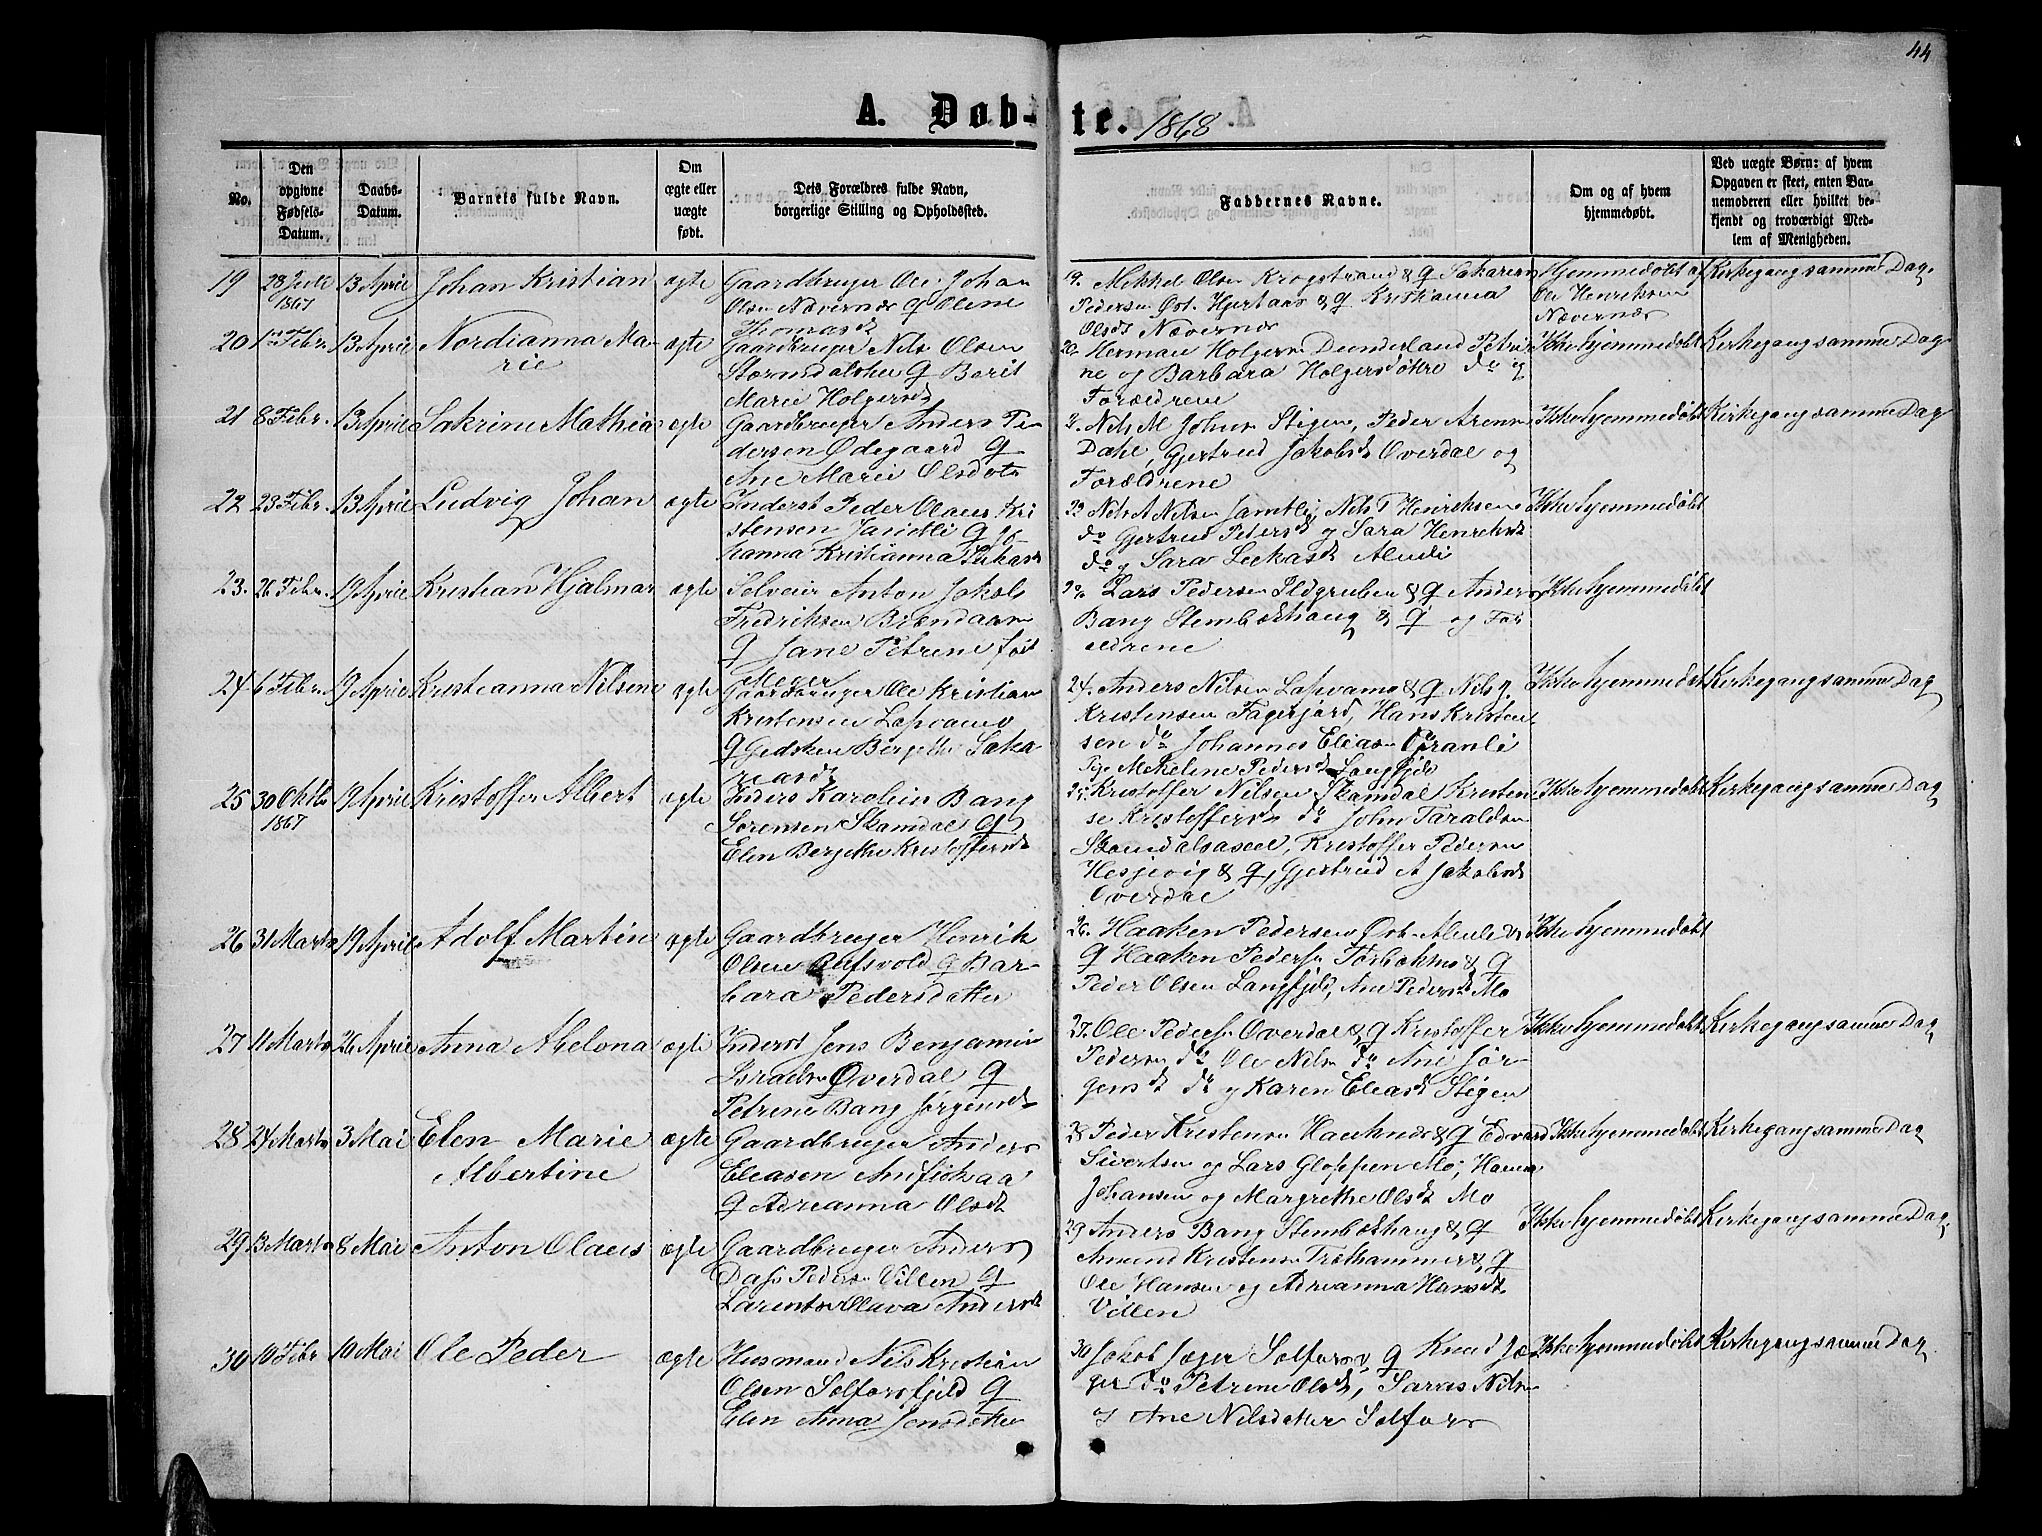 44
A. Døb-te. 1868
No.
Den opgivne Fødsels-Datum.
Daabs-Datum.
Barnets fulde Navn.
Om ægte eller uægte født.
Dets Forældres fulde Navn, borgerlige Stilling og Opholdssted.
Faddernes Navne.
Om og af hvem hjemmedøbt.
Ved uægte Børn: af hvem Opgaven er skeet, enten Barnemoderen eller hvilket bekjendt og troværdigt Medlem af Menigheden.
19 28 Juli 1867 13 April Johan Kristian ægte
Gaardbruger Ole Johan
Olsen Nævernæs & Oline
Thomasdt
19. Mikkel Olsen Krogstrand & q Sakarias
Pedersen Øst. Hjertaas & q Kristianna
Olsdt Nævernæs
Hjemmedøbt af
Ole Henriksen
Nævernæs
Kirkegang samme Dag.
20 1ste Febr. 13 April Nordianna Ma-
rie
ægte
Gaardbruger Nils Olsen
Stormdalshei q Berit
Marie Holgersdt
20. Herman Holgersn Dunderland Petri
ne og Barbara Holgersdøtre do og
Forældrene
Ikke hjemmedøbt Kirkegang samme Dag
21 8 Febr. 13 April Sakrine Mathea ægte
Gaardbruger Anders Pe
dersen Ødegaard q
Ane Marie Olsdotr
21. Nils M Johns Stigen, Peder Arenn
Dahl, Gjertrud Jakobsdt Overdal og
Forældrene
Ikke hjemmedøbt Kirkegang samme Dag
22 23 Febr. 13 April Ludvig Johan ægte
Inderst Peder Olaus Kri
stensen Jamtli q Jo
hanna Kristianna
22 Nils A Nilsen Jamtli, Nils T Henriksen
do Gjertrud Pedersdt og Sara Henriksdt
do og Sara Leekasdt
Ikke hjemmedøbt
23. 26 Febr. 19 April Kristian Hjalmar ægte
Selveier Anton Jakob
Fredriksen Brendaasn
q Jane Petrine født
Meyer
23. Lars Pedersen Ildgruben & q Anders
Bang Stenbækhaug & q og For
ældrene
Ikke hjemmedøbt
24 6 Febr. 19 April Kristianna Nilsine ægte
Gaardbruger Ole Kristian
Kristensen Lapvamo
q Gidsken Bergitte Saka
riasdt
24. Anders Nilsen Lapvamo & q Nils q.
Kristensen Fagerjord, Hans Kristen
sen do Johannes Eliasn Granli
Pige Mekeline Pedersdt Langfjeld
Ikke hjemmedøbt Kirkegang samme Dag
25 30 Oktbr 1867 19 April Kristoffer Albert ægte
Inders Karolius Bang
Sørensen Skamdal q
Elen Bergitte Kristoffersdt
25. Kristoffer Nilsen Skamdal Kristen
se Kristoffersn do John Taraldsn
Skamdalsaasel, Kristoffer Pedersn
Hesjevig & q, Gjertrud A Jakobsdt
Overdal
Ikke hjemmedøbt Kirkegang samme Dag
26 31 Marts 19 April Adolf Martin ægte
Gaardbruger Henrik
Olsen Refsvold q Bar-
bara Pedersdatter
26. Haaken Pedersen Alnli &
q Haaken Pedersn Forbakmo & q
Peder Olsen Langfjeld, Ane Pedersdt Mo
Ikke hjemmedøbt
27 11 Marts 26 April Anna Abelona ægte
Inderst Jens Benjamin
Israelsn Overdal q
Petrine Bang Jørgensdt
27. Ole Pedersn Overdal & q Kristoffer
Pedersn do Ole Nilsn do Ane Jør-
gensdt do og Karen Eleasdt Stigen
Ikke hjemmedøbt Kirkegang samme Dag.
28 24 Marts 3 Mai Elen Marie
Albertine
ægte
Gaardbruger Anders
Eleasen Anfiskaa
q Adreanna Olsdt
28 Peder Kristensn Hauknæs & q Edvard
Sivertsen og Lars Gloppen Mo, Hanna
Johansen og Margrethe Olsdt Mo
Ikke hjemmedøbt Kirkegang samme Dag
29 13 Marts 8 Mai Anton Olaus ægte
Gaardbruger Anders
Dass Pedersn Villen q
Larentse Olava Andersdt
29 Anders Bang Stenbækhaug & q
Amund Kristensn Træthammer & q
Ole Hansen og Adrianna Hansdt
Villen
Ikke hjemmedøbt Kirkegang samme Dag.
30 10 Febr 10 Mai Ole Peder ægte
Husmand Nils Kristian
Olsen Solforsfjeld q
Elen Anna Jensdatter
30 Jakob Jæger Solfors & q Knud Jæ
ger do Petrine Olsdt, Saras Nilsn
og Ane Nilsdatter Solfors
Ikke hjemmedøbt Kirkegang samme Dag